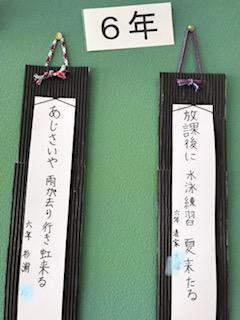 6年
放課後に 水泳練習 夏来たる
六年 清家
あじさいや 雨が去り行き虹来る
六年 杉浦